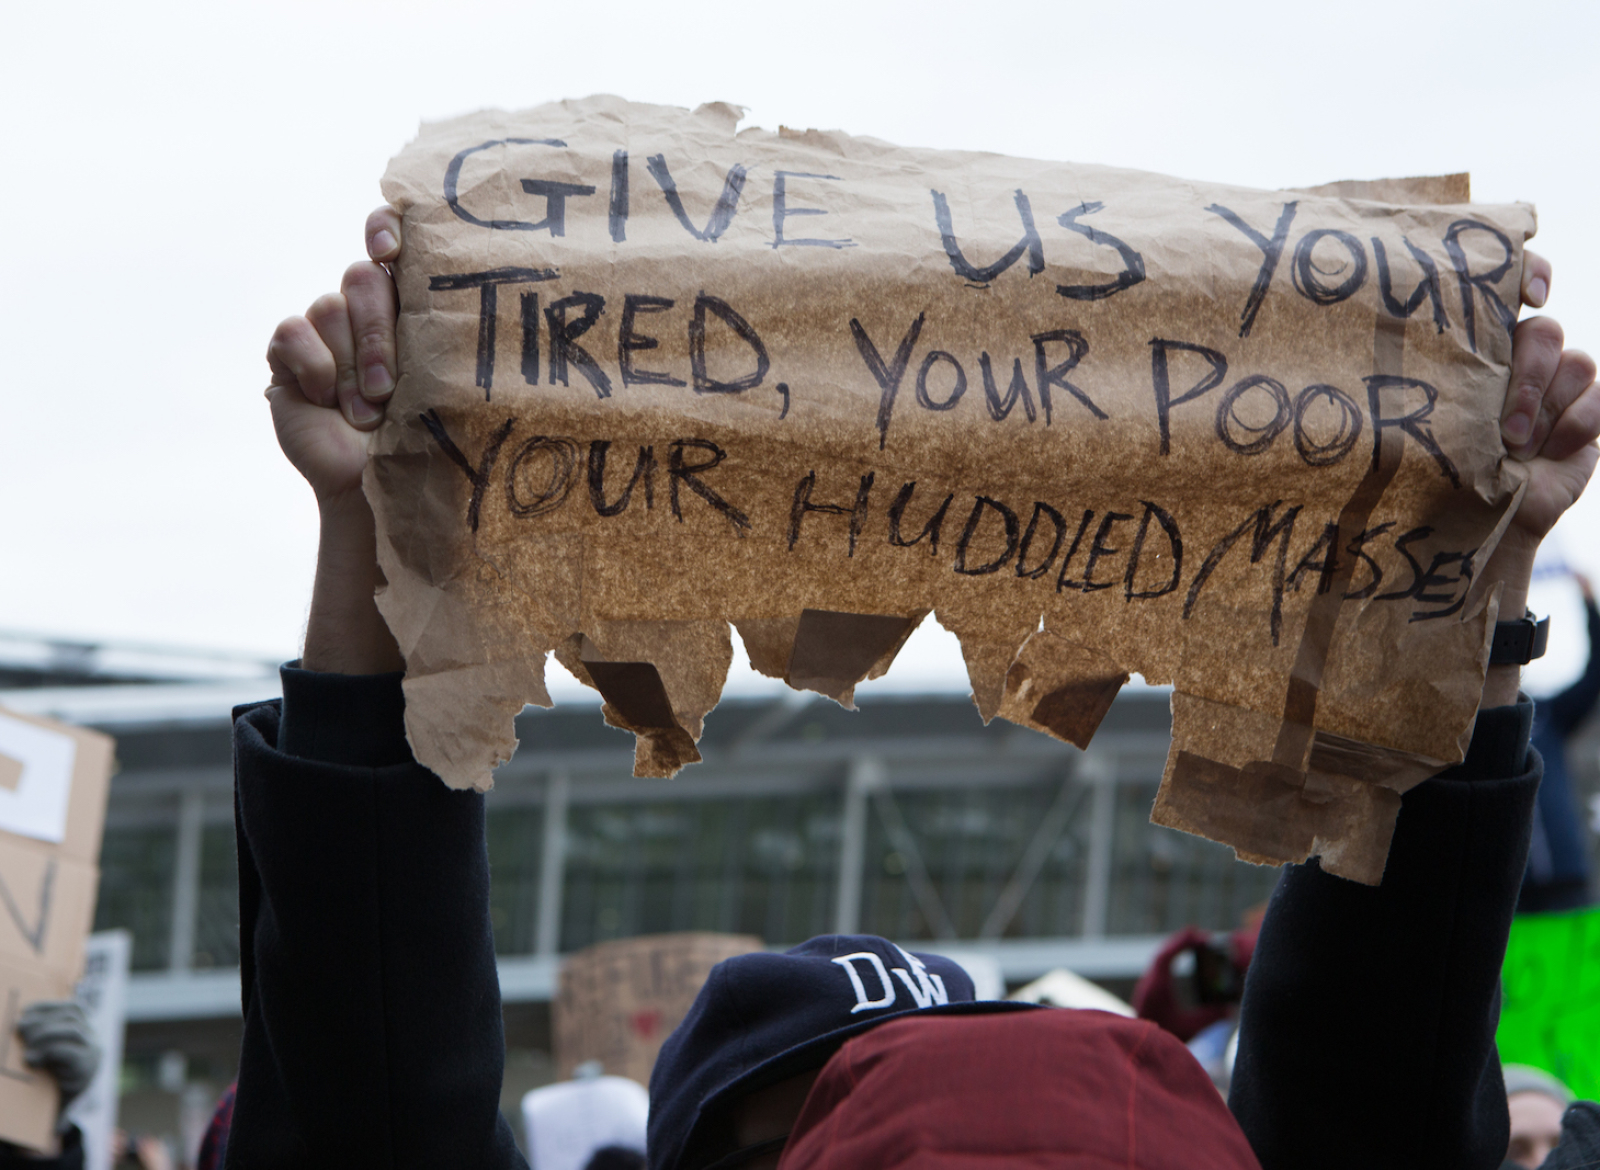 GIVE US YOUR
TIRED, YOUR POOR
YOUR HUDDLED MASSES
DW